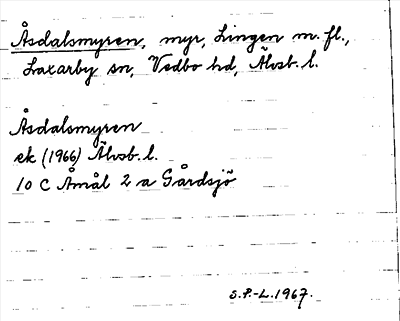 Åsdalsmyren, myr, Lingen m. fl.,
Laxarby sn, Vedbo hd, Älvsb. l.
Åsdalsmyren
ek (1966) Älvsb. l.
10 C Åmål 2 a Gårdsjö
S.P.-L. 1967.